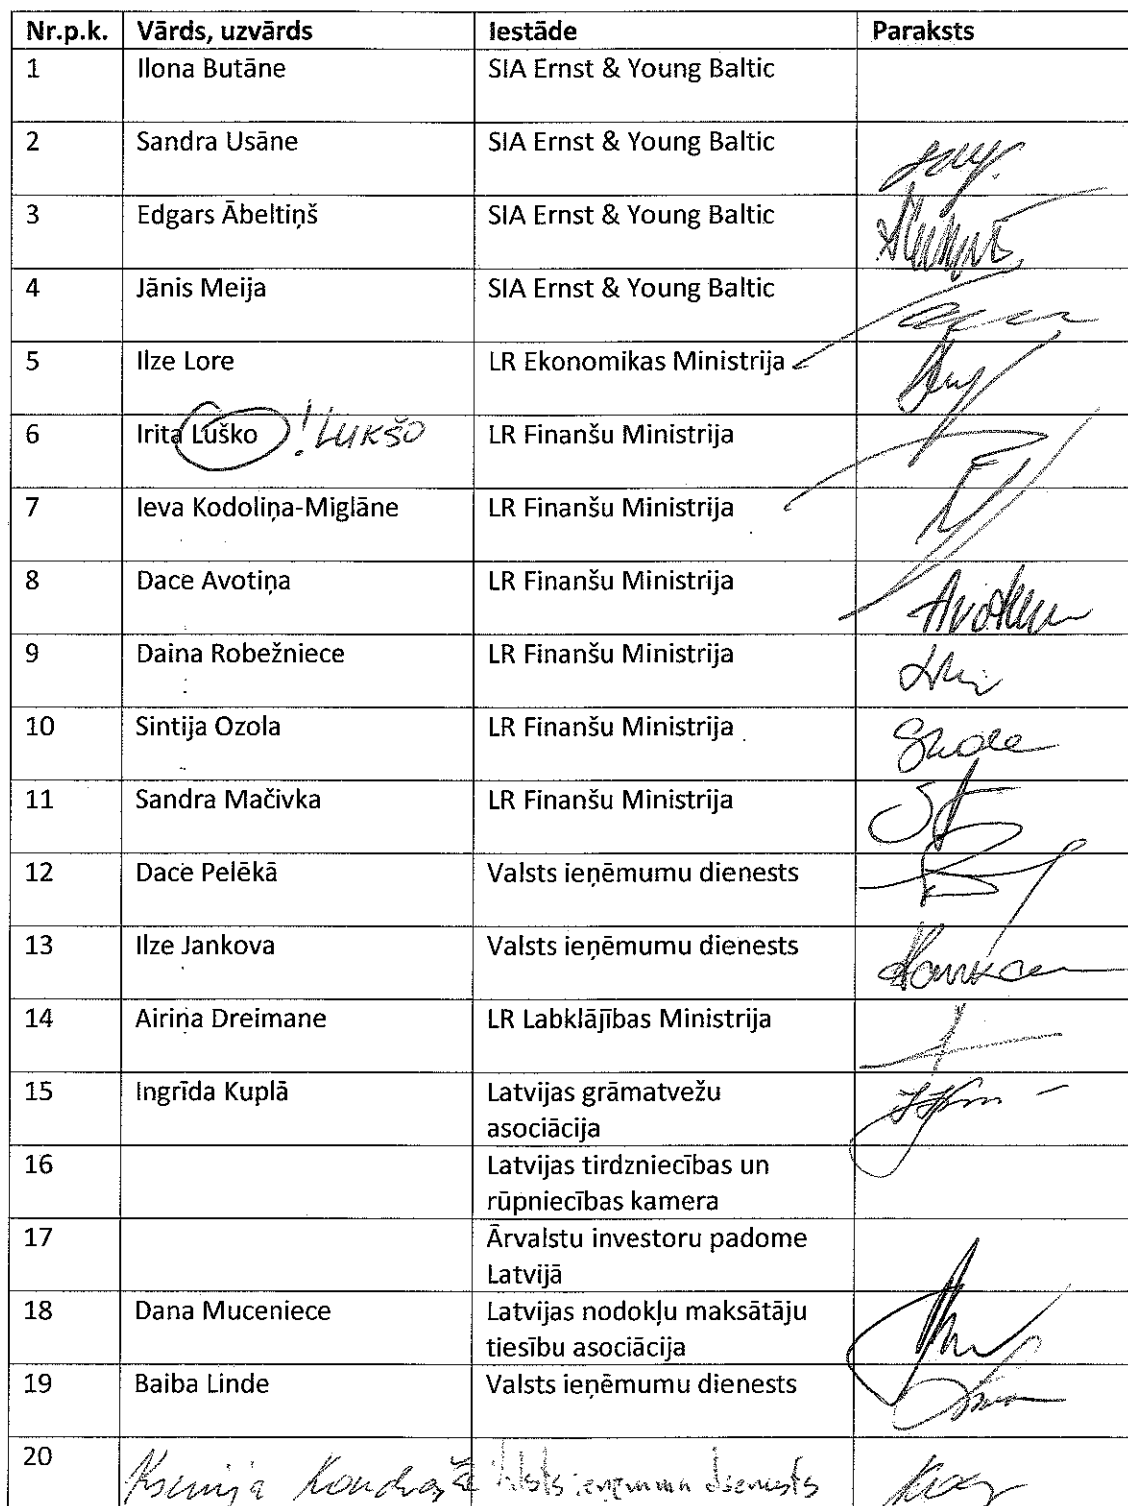 Nr.p.k. Vārds, uzvārds Iestāde Paraksts
1 Ilona Butāne SIA Ernst & Young Baltic
2 Sandra Usāne SIA Ernst & Young Baltic
3 Edgars Ābeltiņš SIA Ernst & Young Baltic
4 Jānis Meija SIA Ernst & Young Baltic
5 Ilze Lore LR Ekonomikas Ministrija
6 Irita Luško ! LUKŠO LR Finanšu Ministrija
7 Ieva Kodoliņa-Miglāne LR Finanšu Ministrija
8 Dace Avotiņa LR Finanšu Ministrija
9 Daina Robežniece LR Finanšu Ministrija
10 Sintija Ozola LR Finanšu Ministrija
11 Sandra Mačivka LR Finanšu Ministrija
12 Dace Pelēkā Valsts ieņēmumu dienests
13 Ilze Jankova Valsts ieņēmumu dienests
14 Airiņa Dreimane LR Labklājības Ministrija
15 Ingrīda Kuplā Latvijas grāmatvežu
asociācija
16 Latvijas tirdzniecības un
rūpniecības kamera
17 Ārvalstu investoru padome
Latvijā
18 Dana Muceniece Latvijas nodokļu maksātāju
tiesību asociācija
19 Baiba Linde Valsts ieņēmumu dienests
20 Valsts ieņēmumu dienests